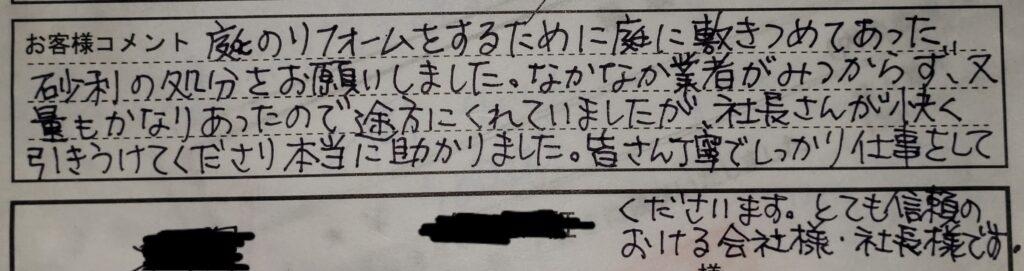 お客様コメント 庭のリフォームをするために庭に敷きつめてあった
砂利の処分をお願いしました。なかなか業者がみつからず、又
量もかなりあったので途方にくれていましたが、社長さんが快く
引きうけてくださり本当に助かりました。皆さん丁寧でしっかり仕事をして
くださいます。とても信頼の
おける会社様・社長様です。
様